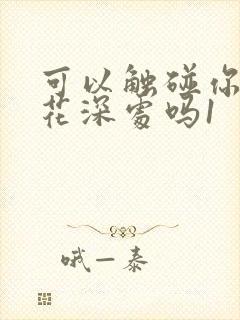 可以触碰你
花深处吗1
哦一泰